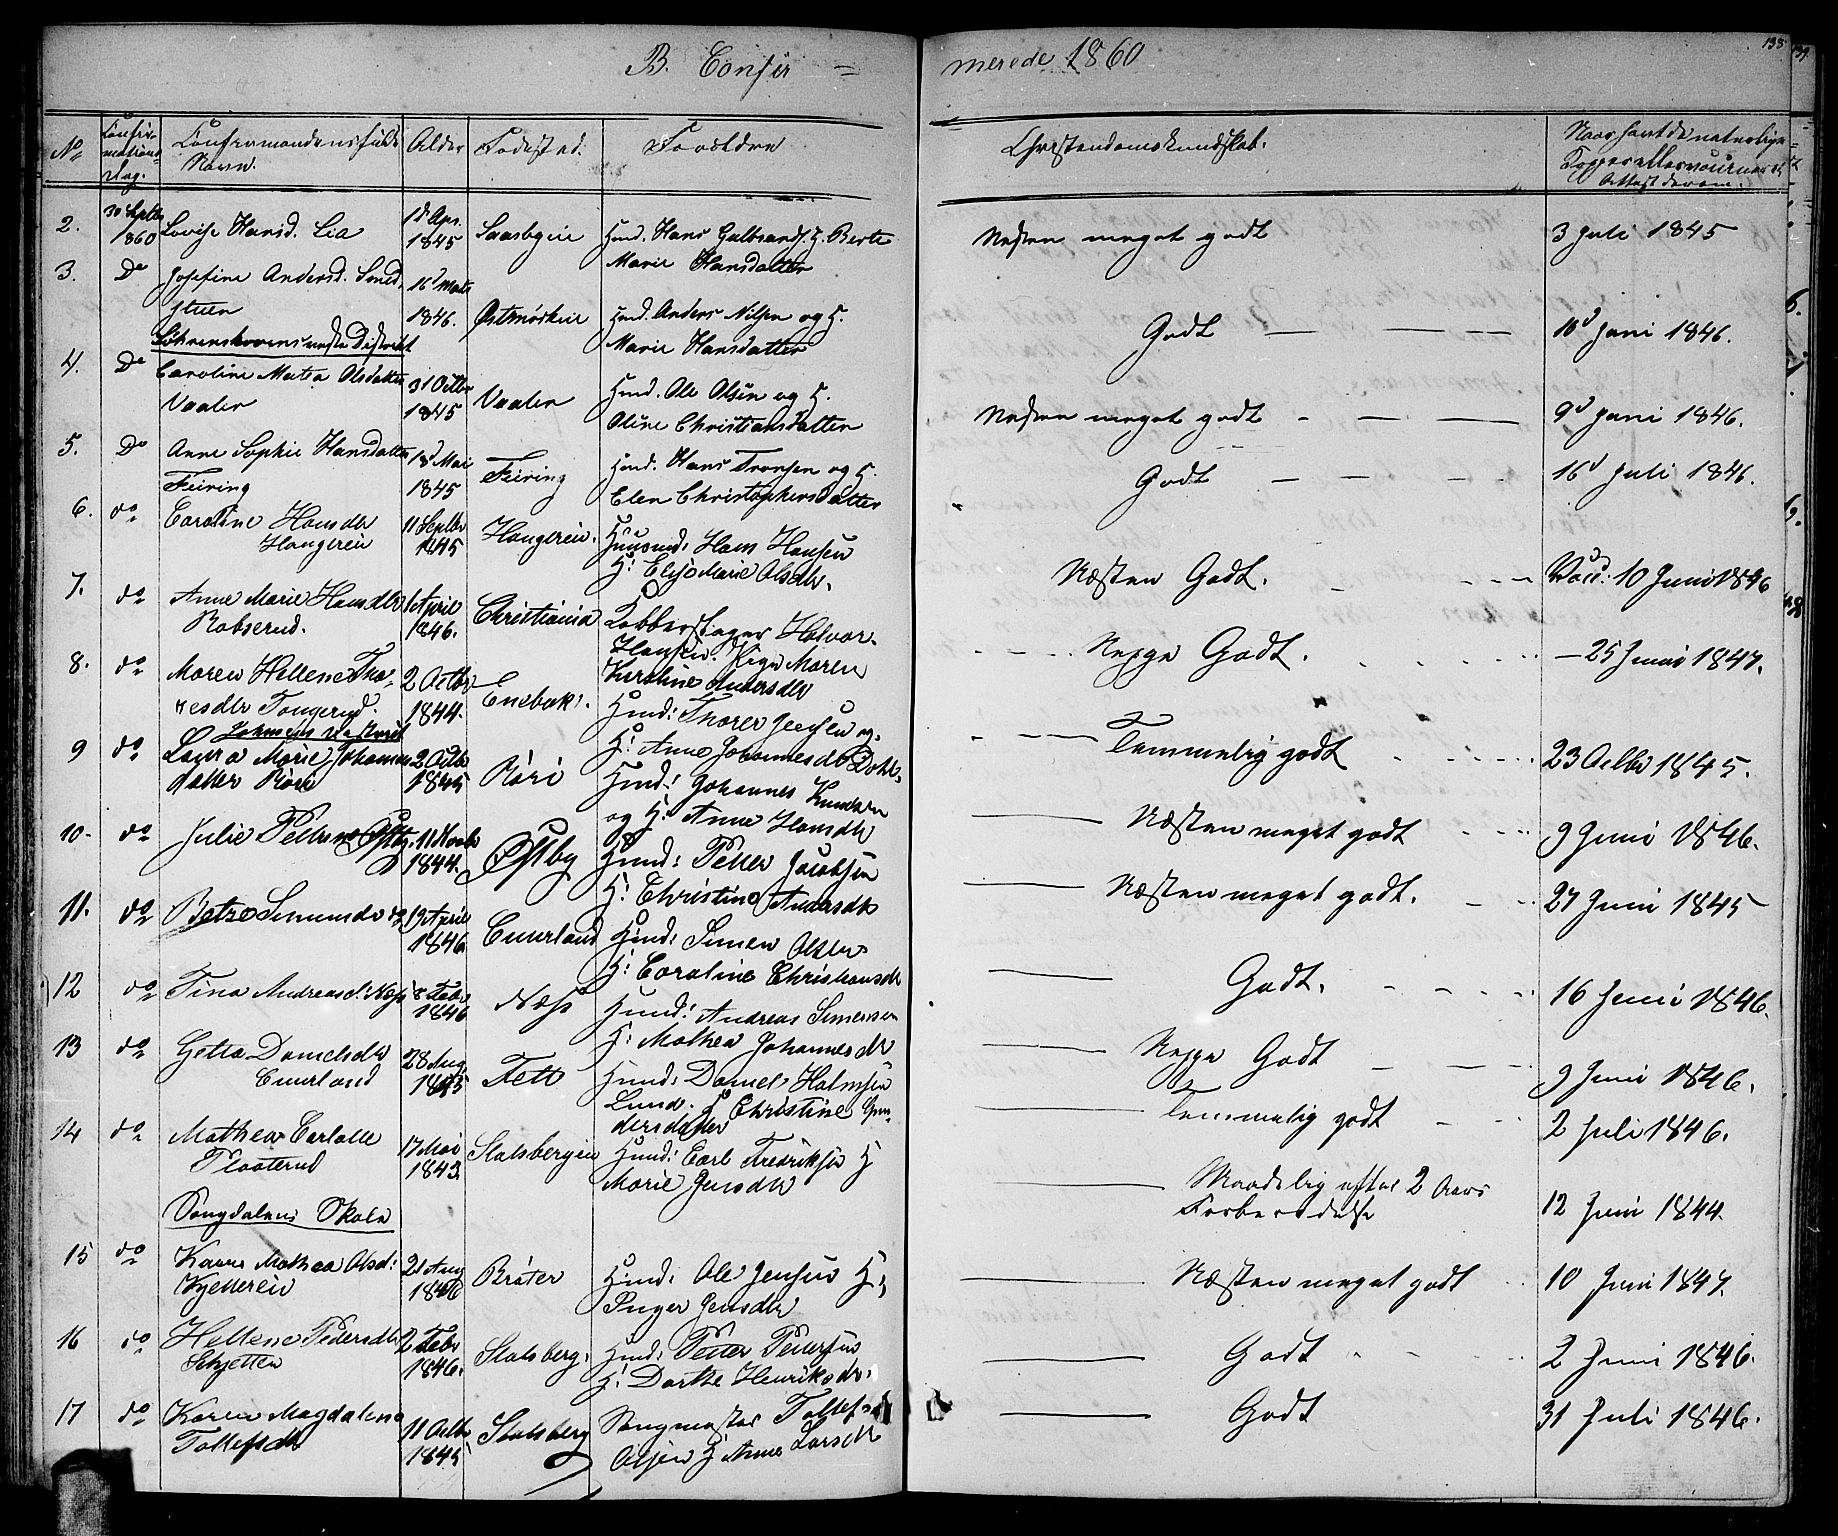 B. Confir = merede 1860
138
No
Confir-
mations
Dag.
Confirmandens fulde
Navn.
Alder
Fødested.
Forældre
Christendomskundskab.
Naar havt de naturlige
Kopper eller vaccineret
Attest derom.
2. 30 Septbr 1860 Lovise Hansd. Lia 1d Apr. 1845 Huusm. Hans Gulbrands. H. Berte
Marie Hansdatter
Næsten meget godt 3 Juli 1845
3. Do Josefine Andersd. Smed-
stuen 16d Marts 1846. Østmörkeie Huusm. Anders Nilsen og H.
Marie Hansdatter
Godt — — — 10d Juni 1846.
4. Do Caroline Matea Olsdatter
Vaaler 31 Octbr 1845 Vaaler Huusm. Ole Olsen og H.
Oline Christiansdatter
Næsten meget godt - — — 9d Juni 1846.
5. Do Anne Sophie Hansdatter
Feiring 18d Mai 1845 Feiring Huusm. Hans Tronsen og H.
Elen Christophersdatter
Godt — — - — 16d Juli 1846.
6. do Caroline Hansdtr
Haugerein 11 Septbr 1845 Haugerein. Huusmd: Hans Hansen
H: Elise Marie Olsdtr.
Næsten Godt. Vacc: 10 Juni 1846
7. do Anne Marie Hansdtr
Robserud. 1 April 1846. Christiania Kobberslager Halvor
Hansen. Pige Maren
Kirstine Andersdtr
Neppe Godt. — 25 Juni 1847.
8. do Maren Hellene Tho-
resdtr Tangerud. 2 Octbr 1844. Enebak. Huusmd: Thorer Jensen og
H: Anne Johannesdtr
Temmelig godt 23 Octbr 1845.
9 do Laura Marie Johannes
datter Röri 2 Octbr 1845 Röri Huusmd: Johannes Knudsen
og H: Anne Hansdtr
Næsten meget godt 9 Juni 1846.
10. do Julie Petterse Østby. 11 Novbr 1844. Østby Huusmd: Petter Jacobsen
H: Christine Andersdtr
Næsten meget godt. 27 Juni 1845
11. do 19 April 1846 Huusmd: Simen Olsen
H: Caroline Christiansdtr
Godt. 16 Juni 1846.
12 do Tina Andreasd: Næss 8 Febr 1846 Næss Huusmd: Andreas Simensen
H: Mathea Johannesdtr
Neppe Godt 9 Juni 1846.
13 do Danielsdtr
28 Aug. 1845 Fett Huusmd: Daniel Halmsen
Lund. H Christine Gun-
dersdatter
Temmelig godt 2 Juli 1846.
14 do Mathea Carlotte
Plaaterud 17 Mai 1843 Statsbergeie Huusmd: Carl Fredriksen H
Marie Jensdtr
Maadelig efter 2 Aars
Forberedelse 12 Juni 1844.
Songdalens Skole
15 do Karen Mathea Olsd:
Kjetterein 21 Aug 1846 Bråter Huusmd: Ole Jensen H:
Inger Jensdtr
Næsten meget godt 10 Juni 1847.
16 do Hellene Pedersdtr
Schjetten 2 Febr 1846. Statsberg. Huusmd: Petter Pettersen
H: Dorthe Henriksdtr.
Godt 2 Juni 1846.
17 do Karen Magdalena
Tollefsdtr 11 Octbr 1845 Statsberg Tollef
Olsen H Anne Larsdtr
Godt 31 Juli 1846.